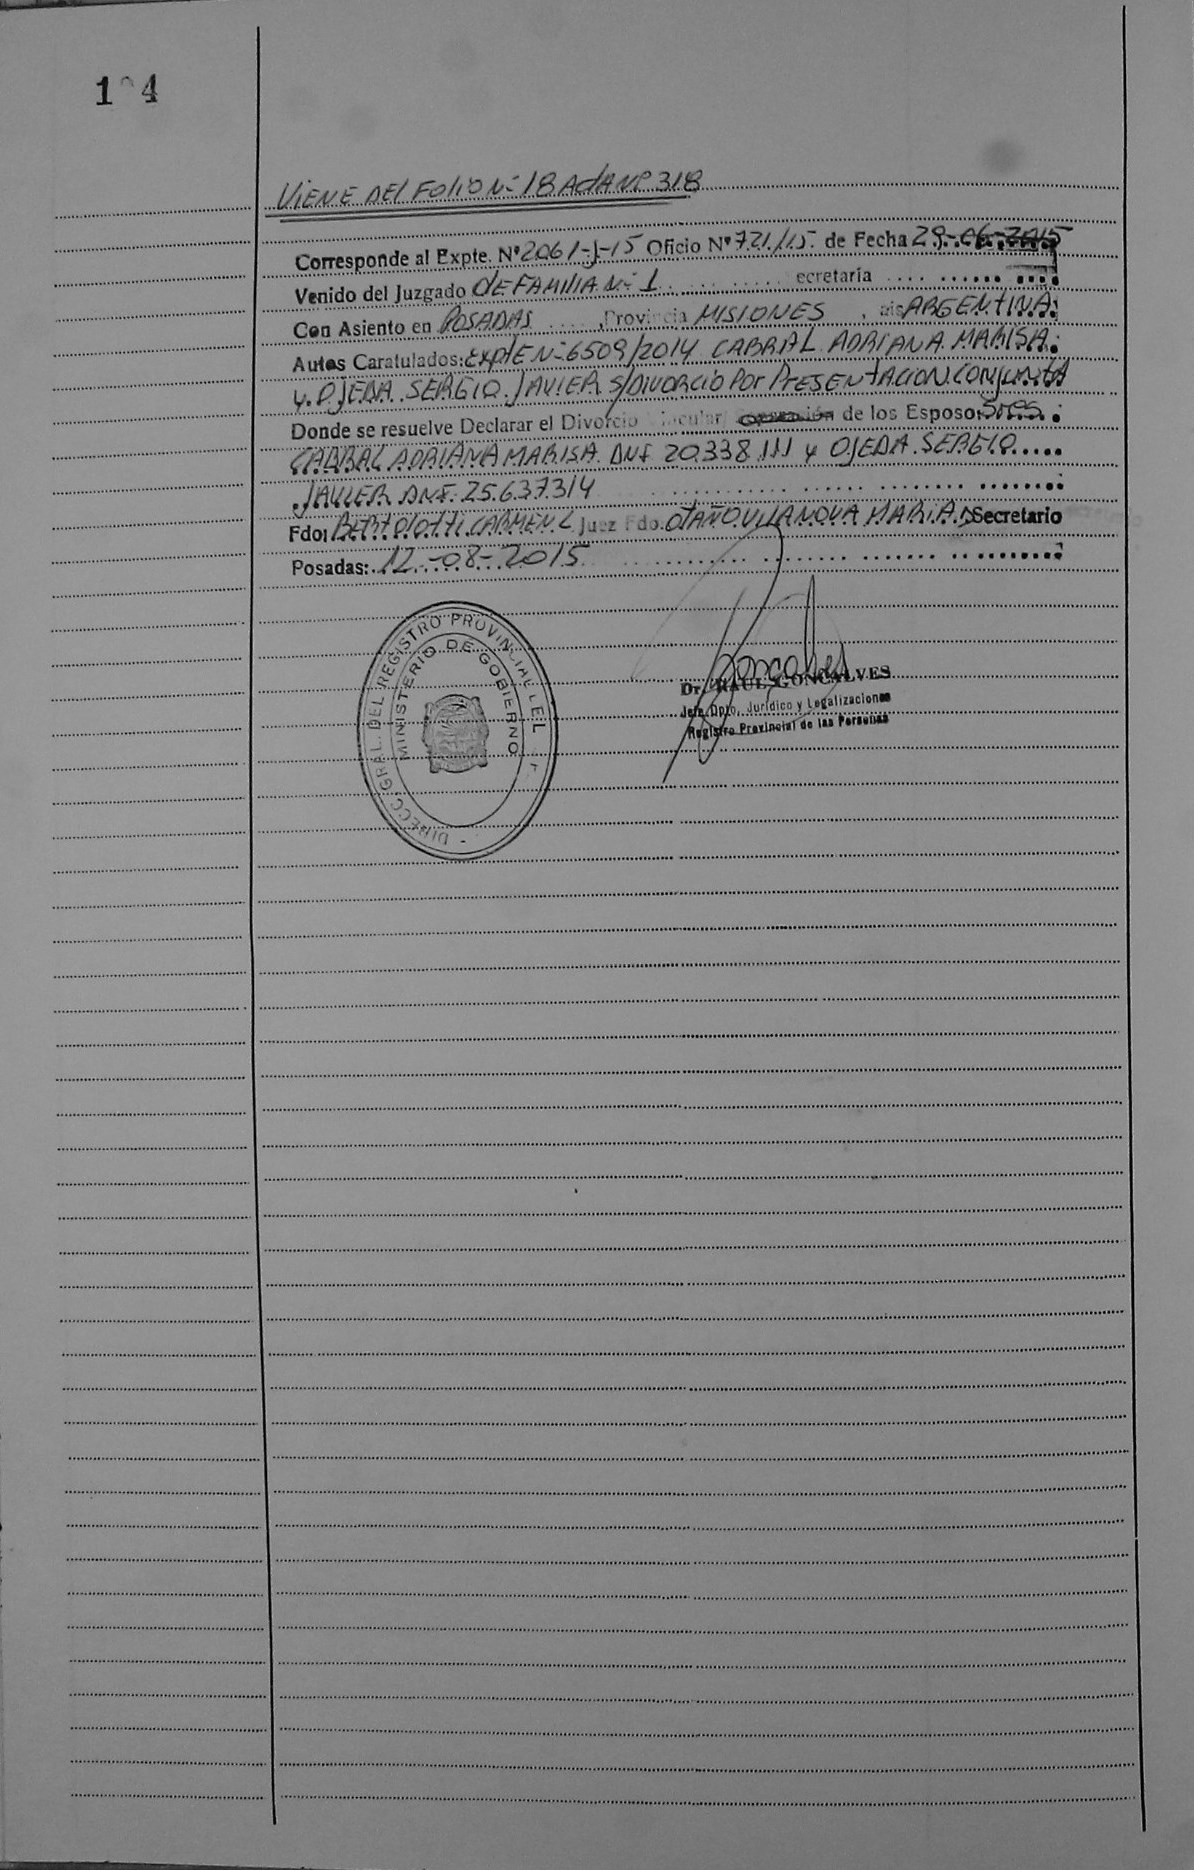 1 4
VIENE DEL FOLIO Nº 18 Acta Nº 318
Corresponde al Expte. Nº 2061-J-15 Oficio Nº 721/15 de Fecha 29-06-2015
Venido del Juzgado de FAMILIA Nº 1 ecretaría
Con Asiento en POSADAS, Provincia MISIONES, ais ARGENTINA
Autos Caratulados: Expte Nº 6509/2014 CABRAL ADRIANA MARISA
y OJEDA SERGIO JAVIER S/DIVORCIO POR PRESENTACION CONJUNTA
Donde se resuelve Declarar el Divorcio incular de los Esposos Sres
CABRAL ADRIANA MARISA DNI 20.338.111 y OJEDA SERGIO
JAVIER DNI 25.637.314
Fdo: BERTOLOTTI CARMEN C Juez Fdo. OTAÑO VILANOVA MARIA Secretario
Posadas: 12-08-2015
DIRECC. GRAL. DEL REGISTRO PROVINCIAL DE L
MINISTERIO DE GOBIERNO
Goncalves
Dr. RAUL GONCALVES
Jefe Dpto. Jurídico y Legalizaciones
Registro Provincial de las Personas